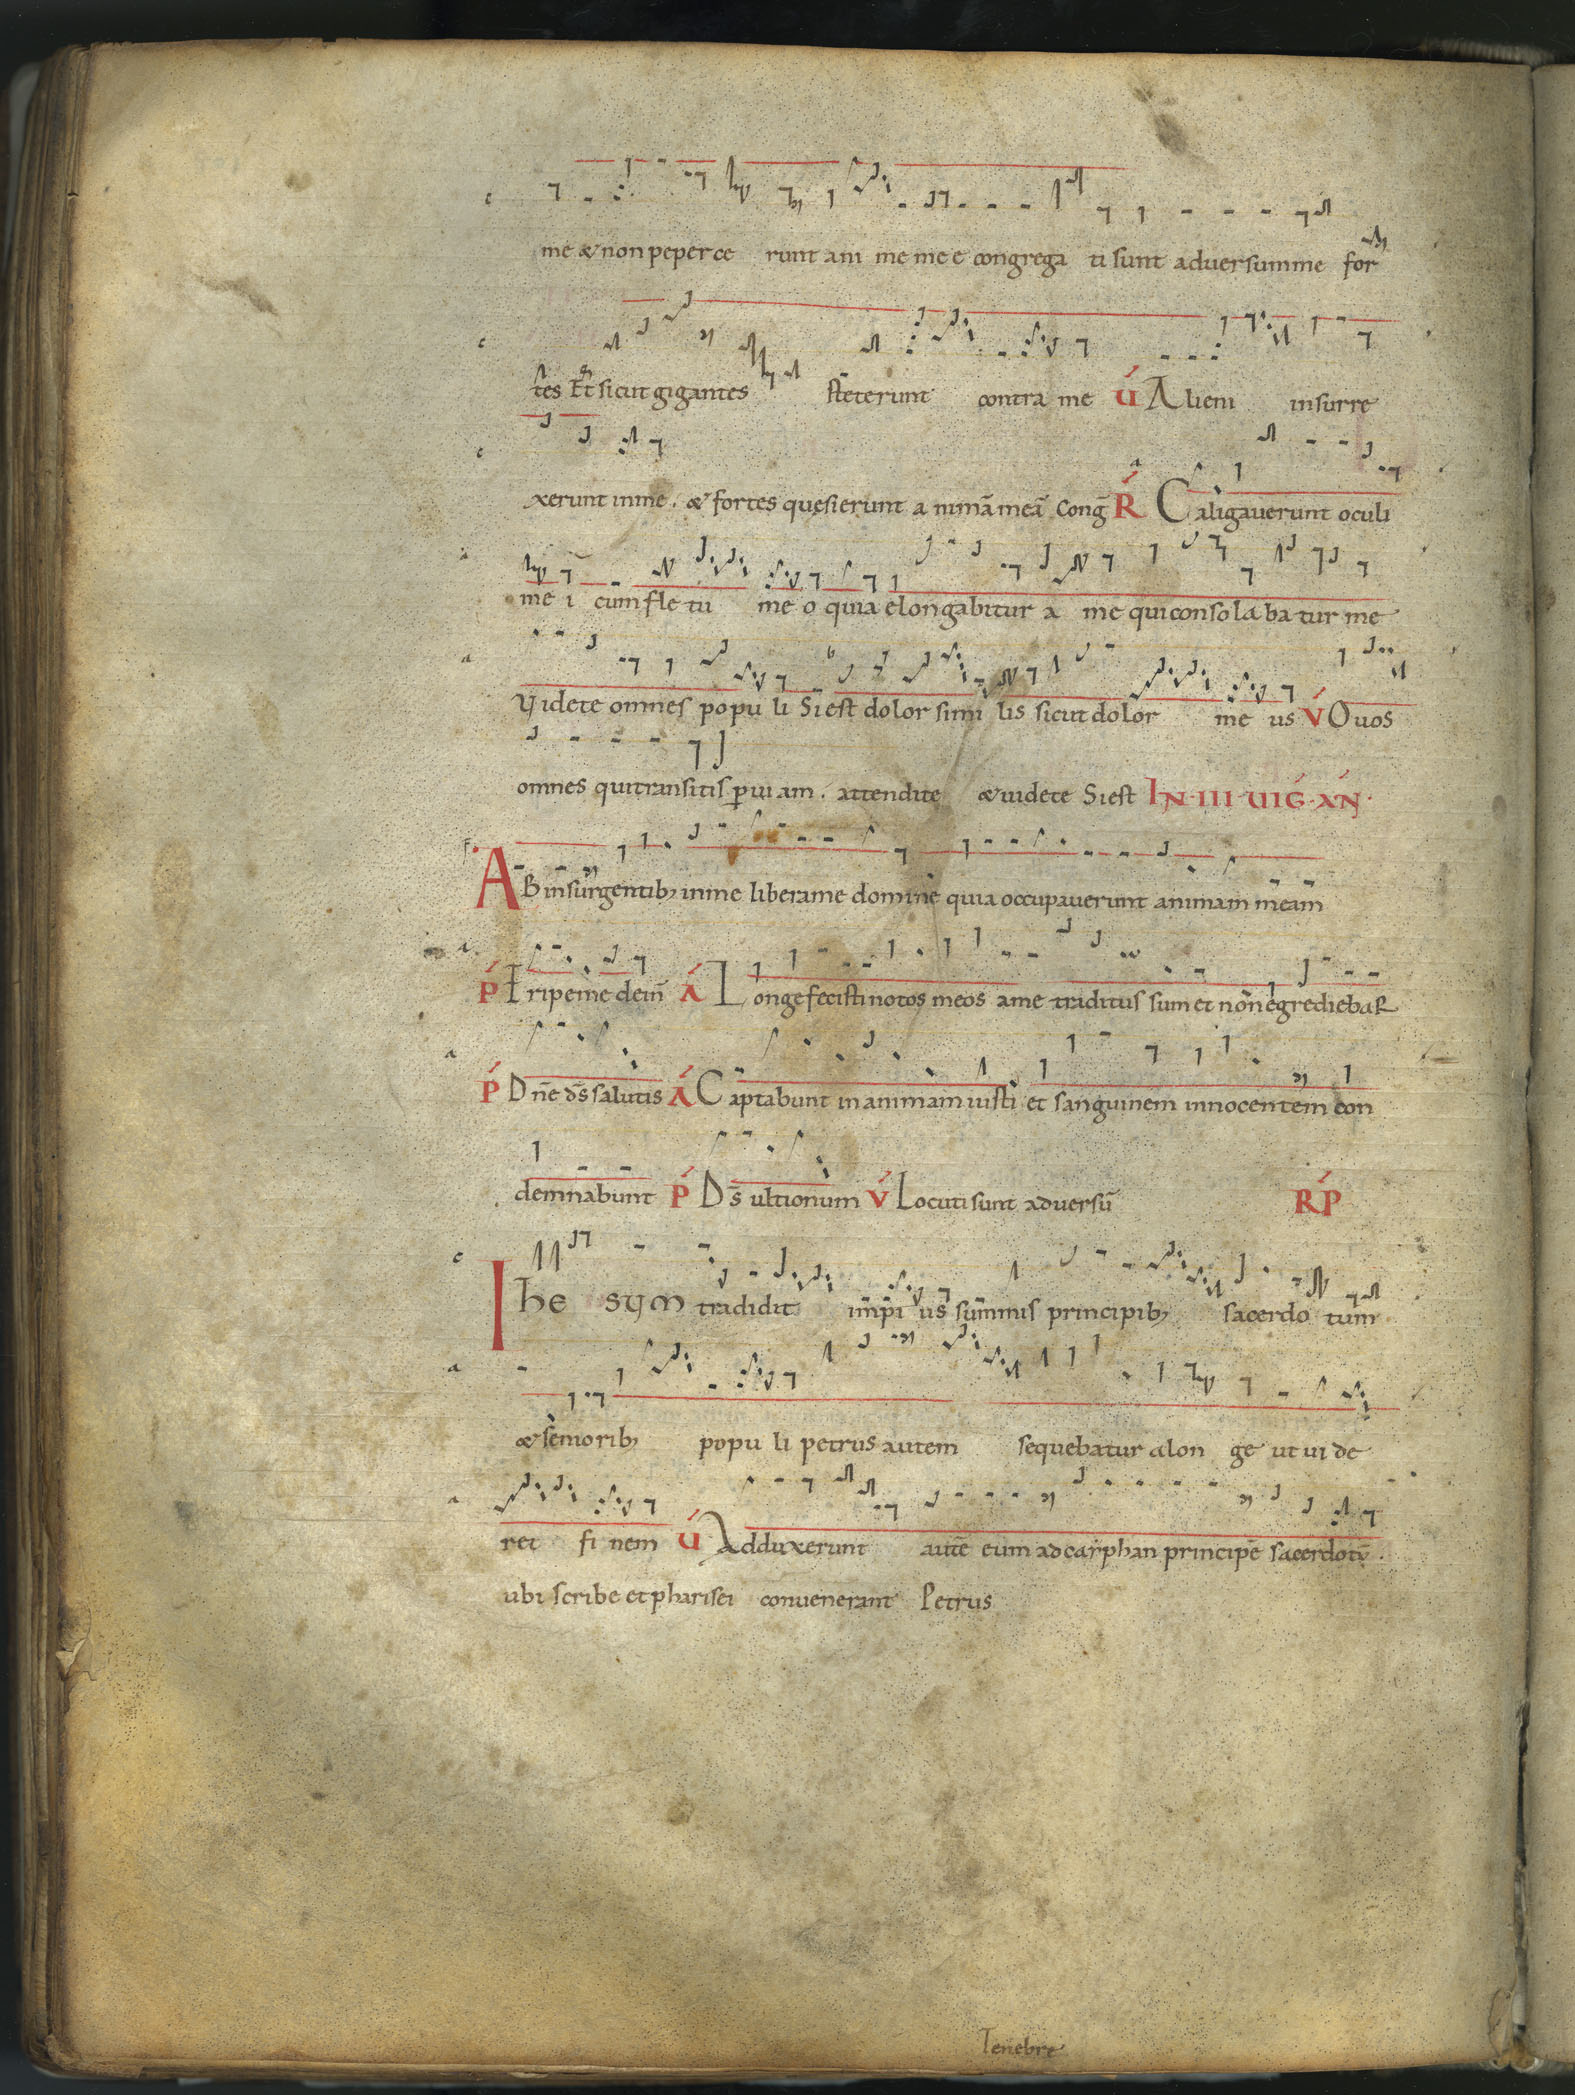 me & non peperce runt ani me me e congrega ti sunt adversum me for
tes Et sicut gigantes steterunt contra me V́ Alieni insurre
xerunt in me . & fortes quęsierunt a nimā meā Cong̅ Ŕ Caligauerunt oculi
me i cum fle tu me o quia elongabitur a me qui conso la ba tur me
Videte omnes popu li Si est dolor simi lis sicut dolor me us V́ O uos
omnes qui transitis ꝑ uiam . attendite & uidete Si est IN · III · UIǴ · AŃ ·
AB insurgentib; in me libera me domine quia occupauerunt animam meam
Ṕ Eripe me de im̄ Á Longe fecisti notos meos a me traditus sum et non egrediebaR
Ṕ Dn̄e d̄s salutis Á Captabunt in animam iusti et sanguinem innocentem con
demnabunt Ṕ D̄s ultionum V́ Locuti sunt aduersū RṔ
Ihe sym tradidit impi us summis principib; sacerdo tum
& seniorib; popu li petrus autem sequebatur a lon ge ut ui de
ret fi nem V́ Adduxerunt autē eum ad cayphan principē sacerdotū .
ubi scribe et pharisei conuenerant Petrus
Tenebre